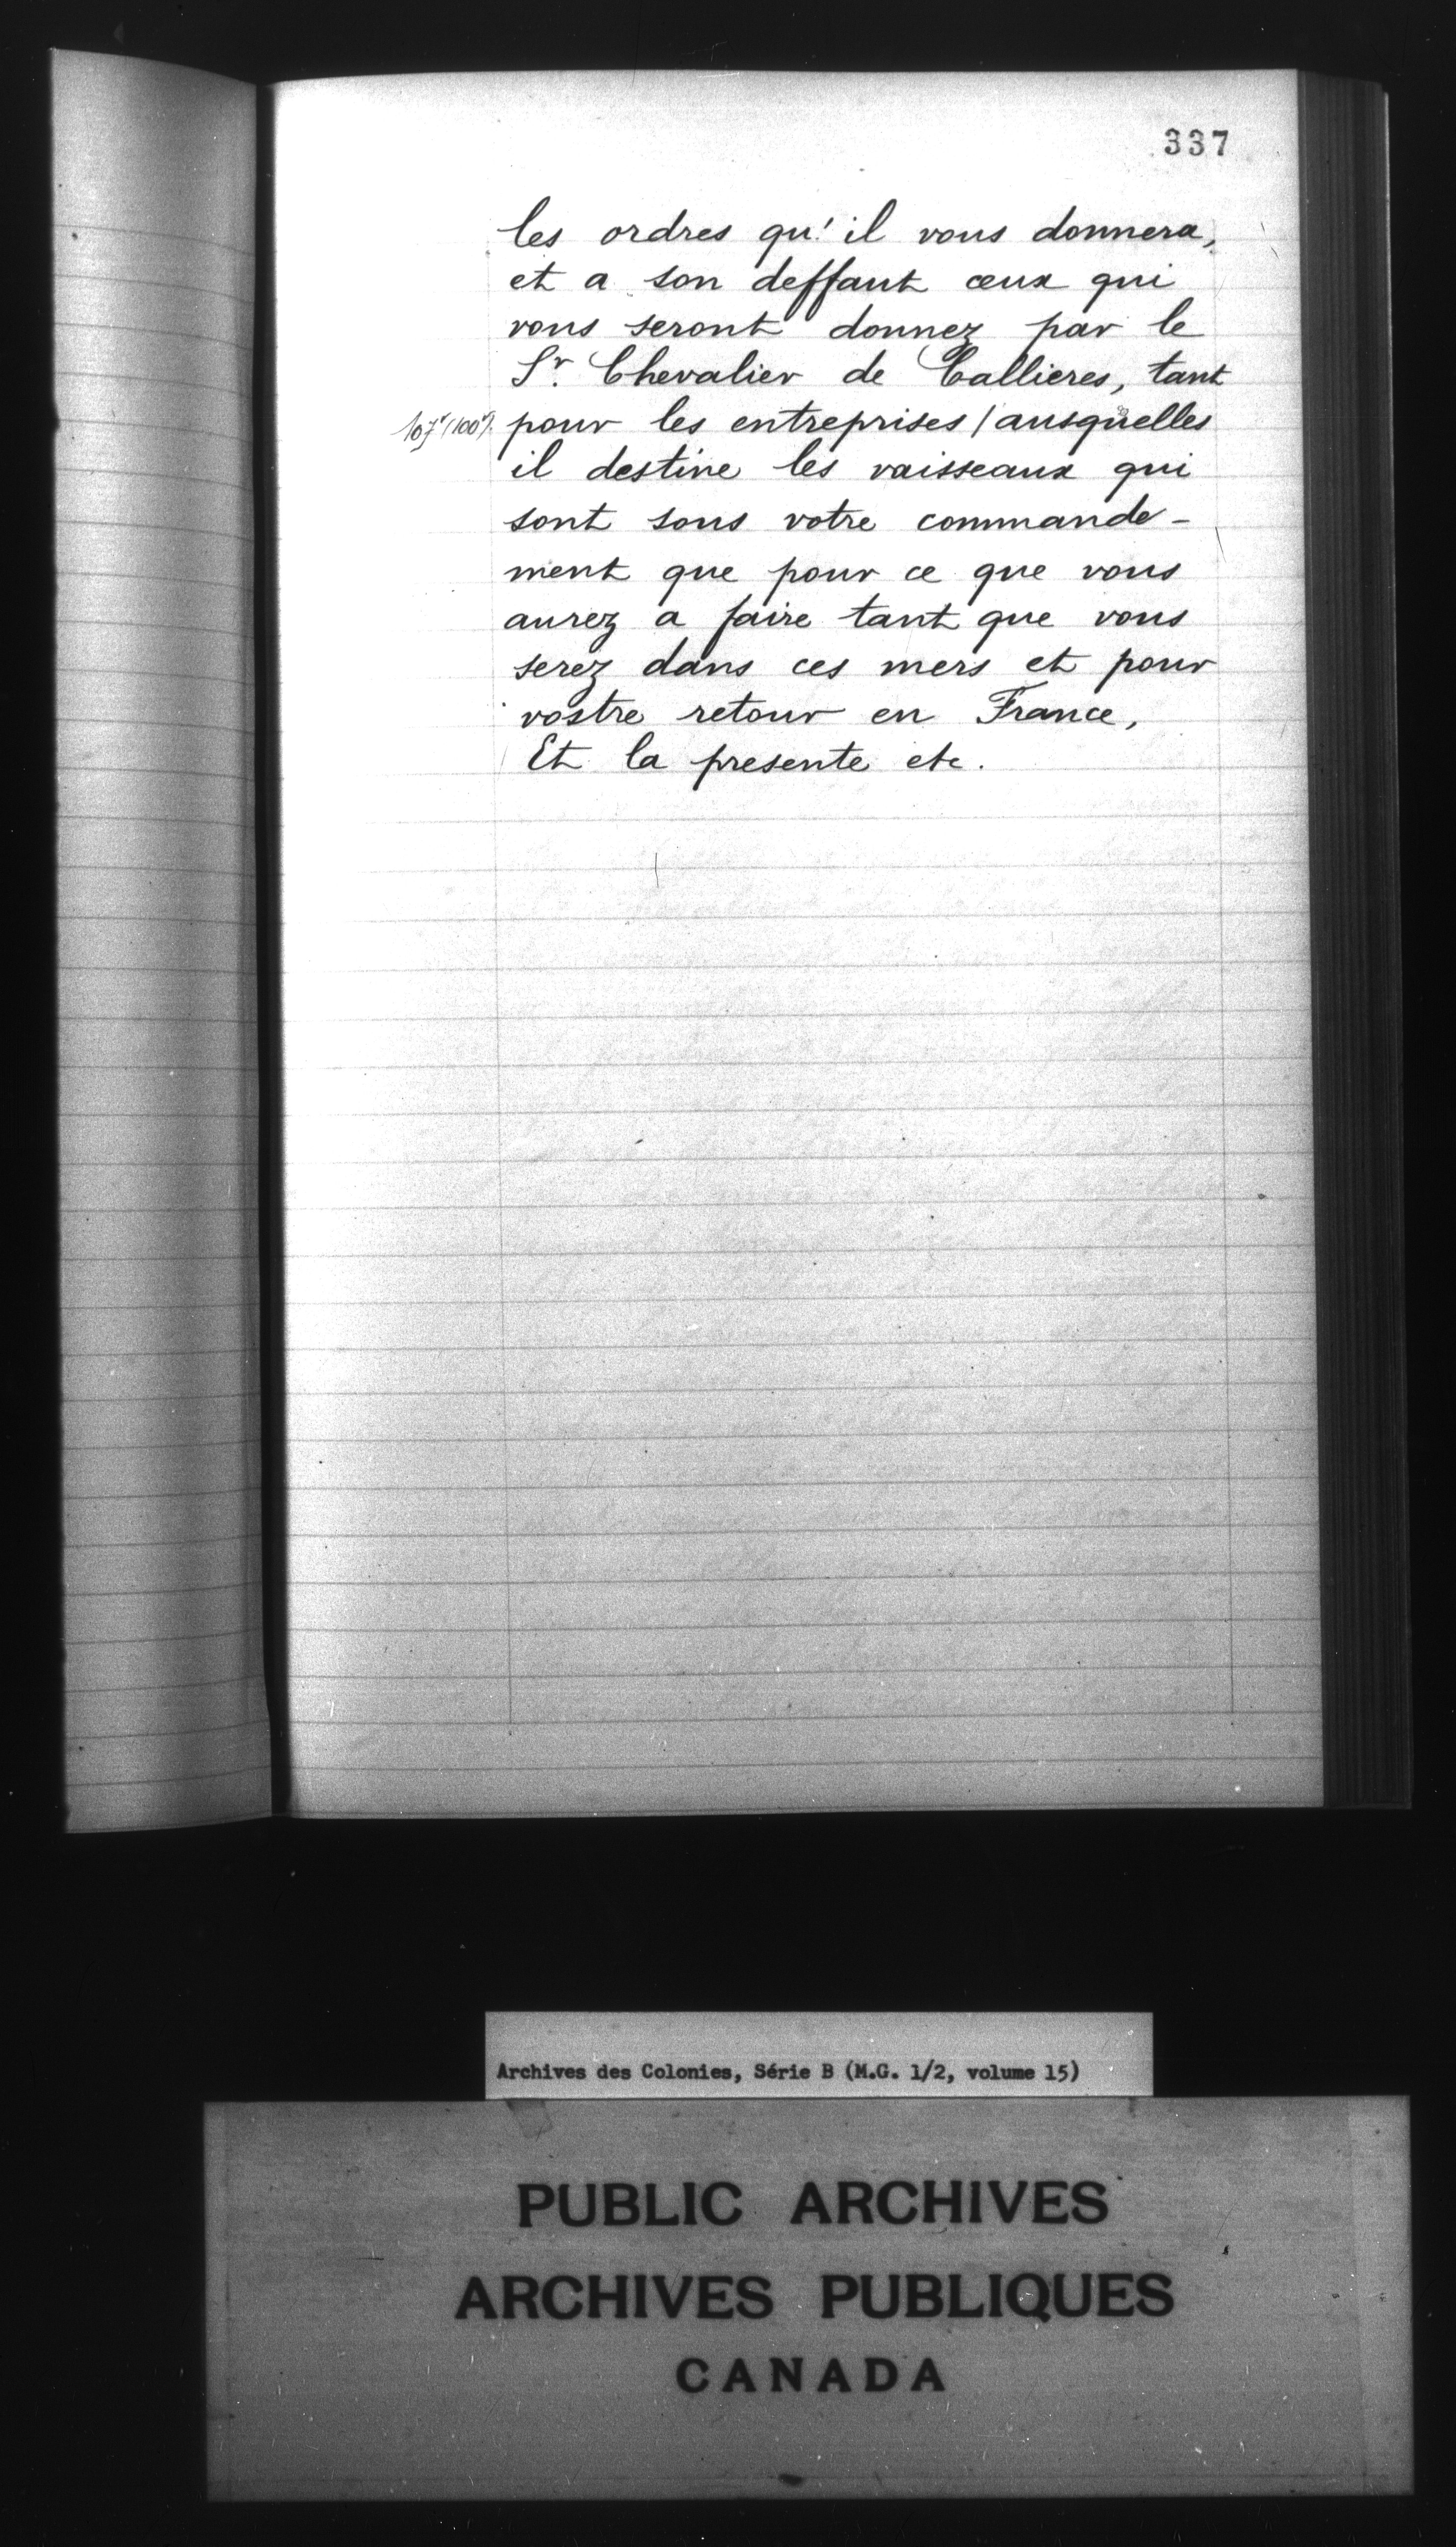 337
les ordres qu'il vous donnera,
et a son deffaut ceux qui
vous seront donnez par le
Sr. Chevalier de Callieres, tant
107v (100v) pour les entreprises / ausquelles
il destine les vaisseaux qui
sont sous votre commande-
ment que pour ce que vous
aurez a faire tant que vous
serez dans ces mers et pour
vostre retour en France,
Et la presente etc.
Archives des Colonies, Série B (M.G. 1/2, volume 15)
PUBLIC ARCHIVES
ARCHIVES PUBLIQUES
CANADA